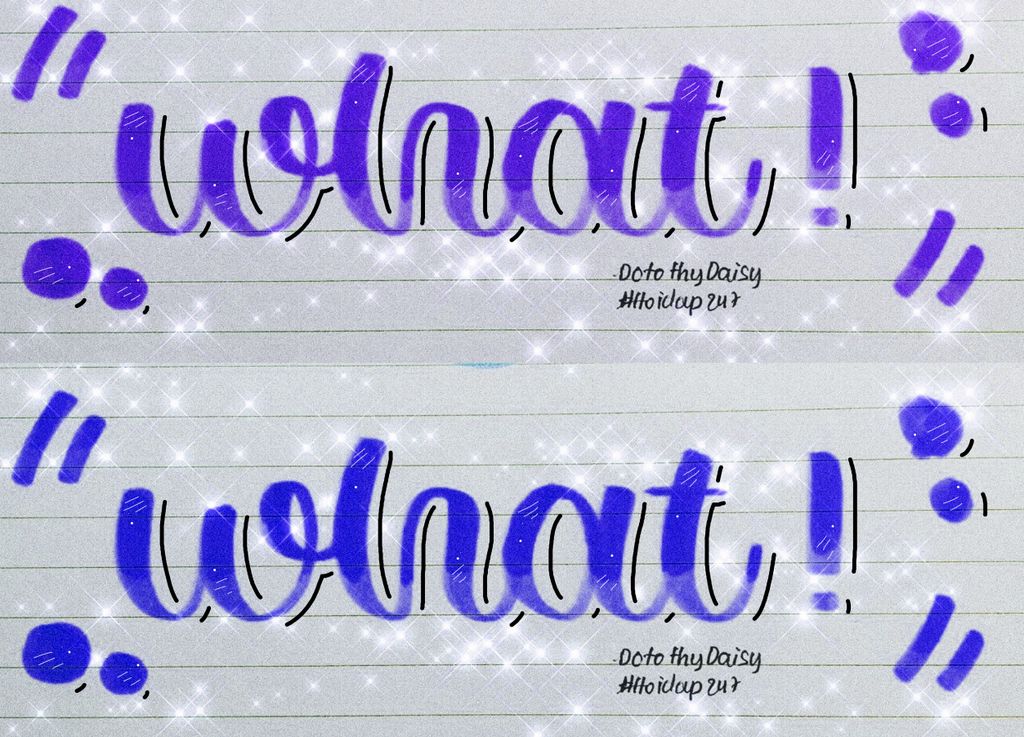 what!
-Doto thy Daisy
#Hoidap247
what!
-Doto thy Daisy
#Hoidap247